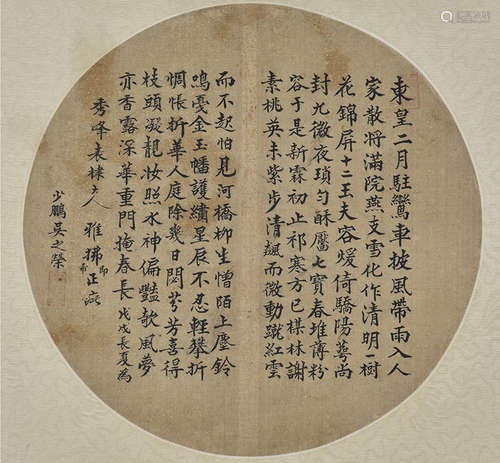 東皇二月駐鸞車披風帶雨入人
家散將滿院燕支雪化作清明一樹
花錦屏十二玉夫容煖倚驕陽萼尚
封九微夜瑣勻酥靨七寶春堆薄粉
容于是新霖初止祁寒方已楳林謝
素桃英未紫步清飆而微動蹴紅雲
而不起怕見河橋柳生憎陌上塵鈴
鳴憂金玉幡護繡星辰不忍輕攀折
惆悵折華人庭除幾日閟芳喜得
枝頭凝靚妝照水神偏豔欹風夢
亦香露深華重門掩春長戊戌長夏為
秀峰表棣大人雅拂即希正
少鵬吳之榮